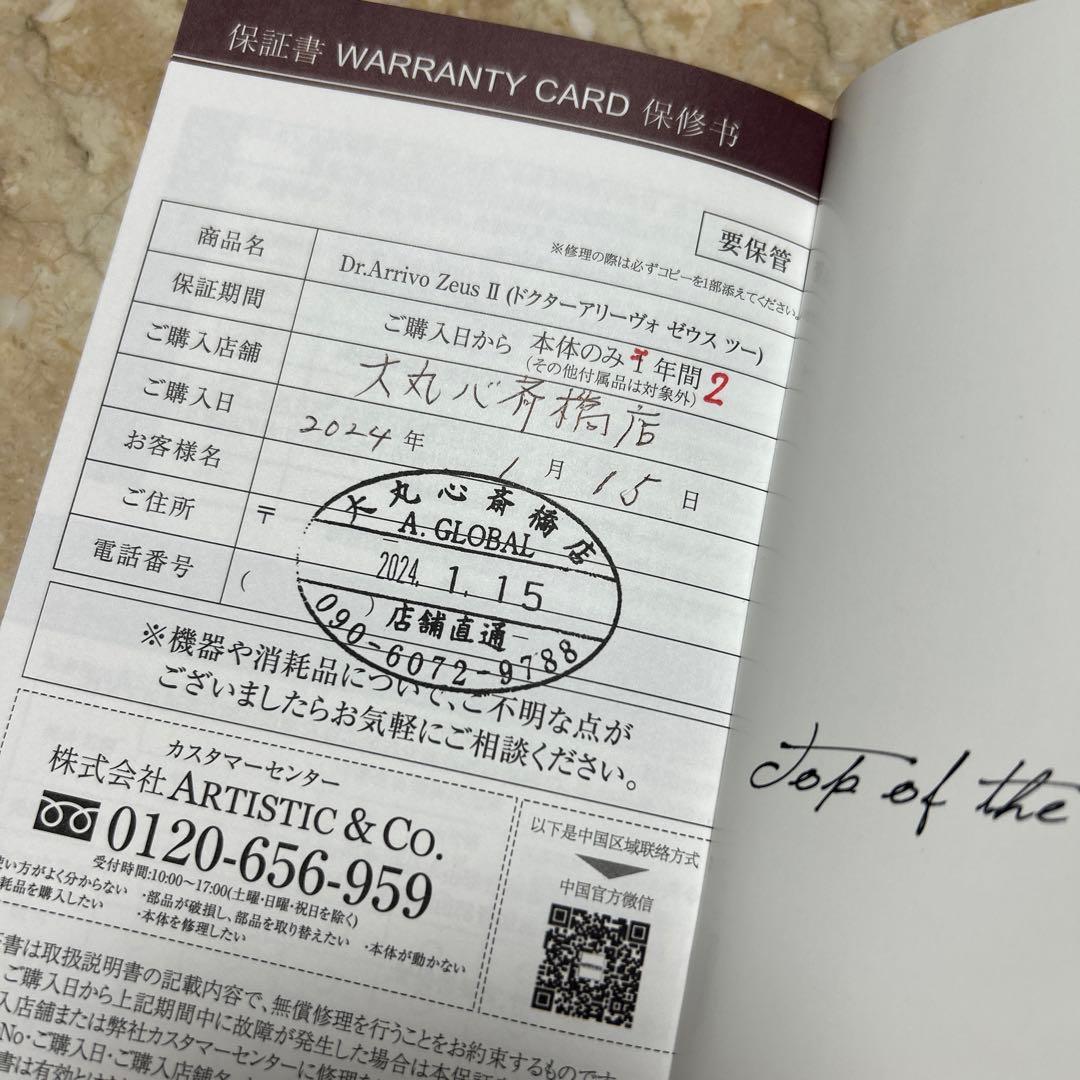 保証書 WARRANTY CARD 保修书
要保管
※修理の際は必ずコピーを1部添えてください。
商品名 Dr.Arrivo Zeus II (ドクターアリーヴォ ゼウス ツー)
保証期間 ご購入日から 本体のみ 1年間 2
(その他付属品は対象外)
ご購入店舗 大丸心斎橋店
ご購入日 2024年 1月 15日
お客様名
ご住所 〒
電話番号 ( )
大丸心斎橋店
A. GLOBAL
2024. 1. 15
店舗直通
090-6072-9788
※機器や消耗品について、ご不明な点が
ございましたらお気軽にご相談ください。
カスタマーセンター
株式会社 ARTISTIC & CO.
0120-656-959
受付時間:10:00〜17:00(土曜・日曜・祝日を除く)
使い方がよく分からない ・部品が破損し、部品を取り替えたい ・本体が動かない
耗品を購入したい ・本体を修理したい
以下是中国区域联络方式
中国官方微信
書は取扱説明書の記載内容で、無償修理を行うことをお約束するものです
ご購入日から上記期間中に故障が発生した場合は本保証
入店舗または弊社カスタマーセンターに修理を
No・ご購入日・ご購入店舗名
書は有効とは
Top of the